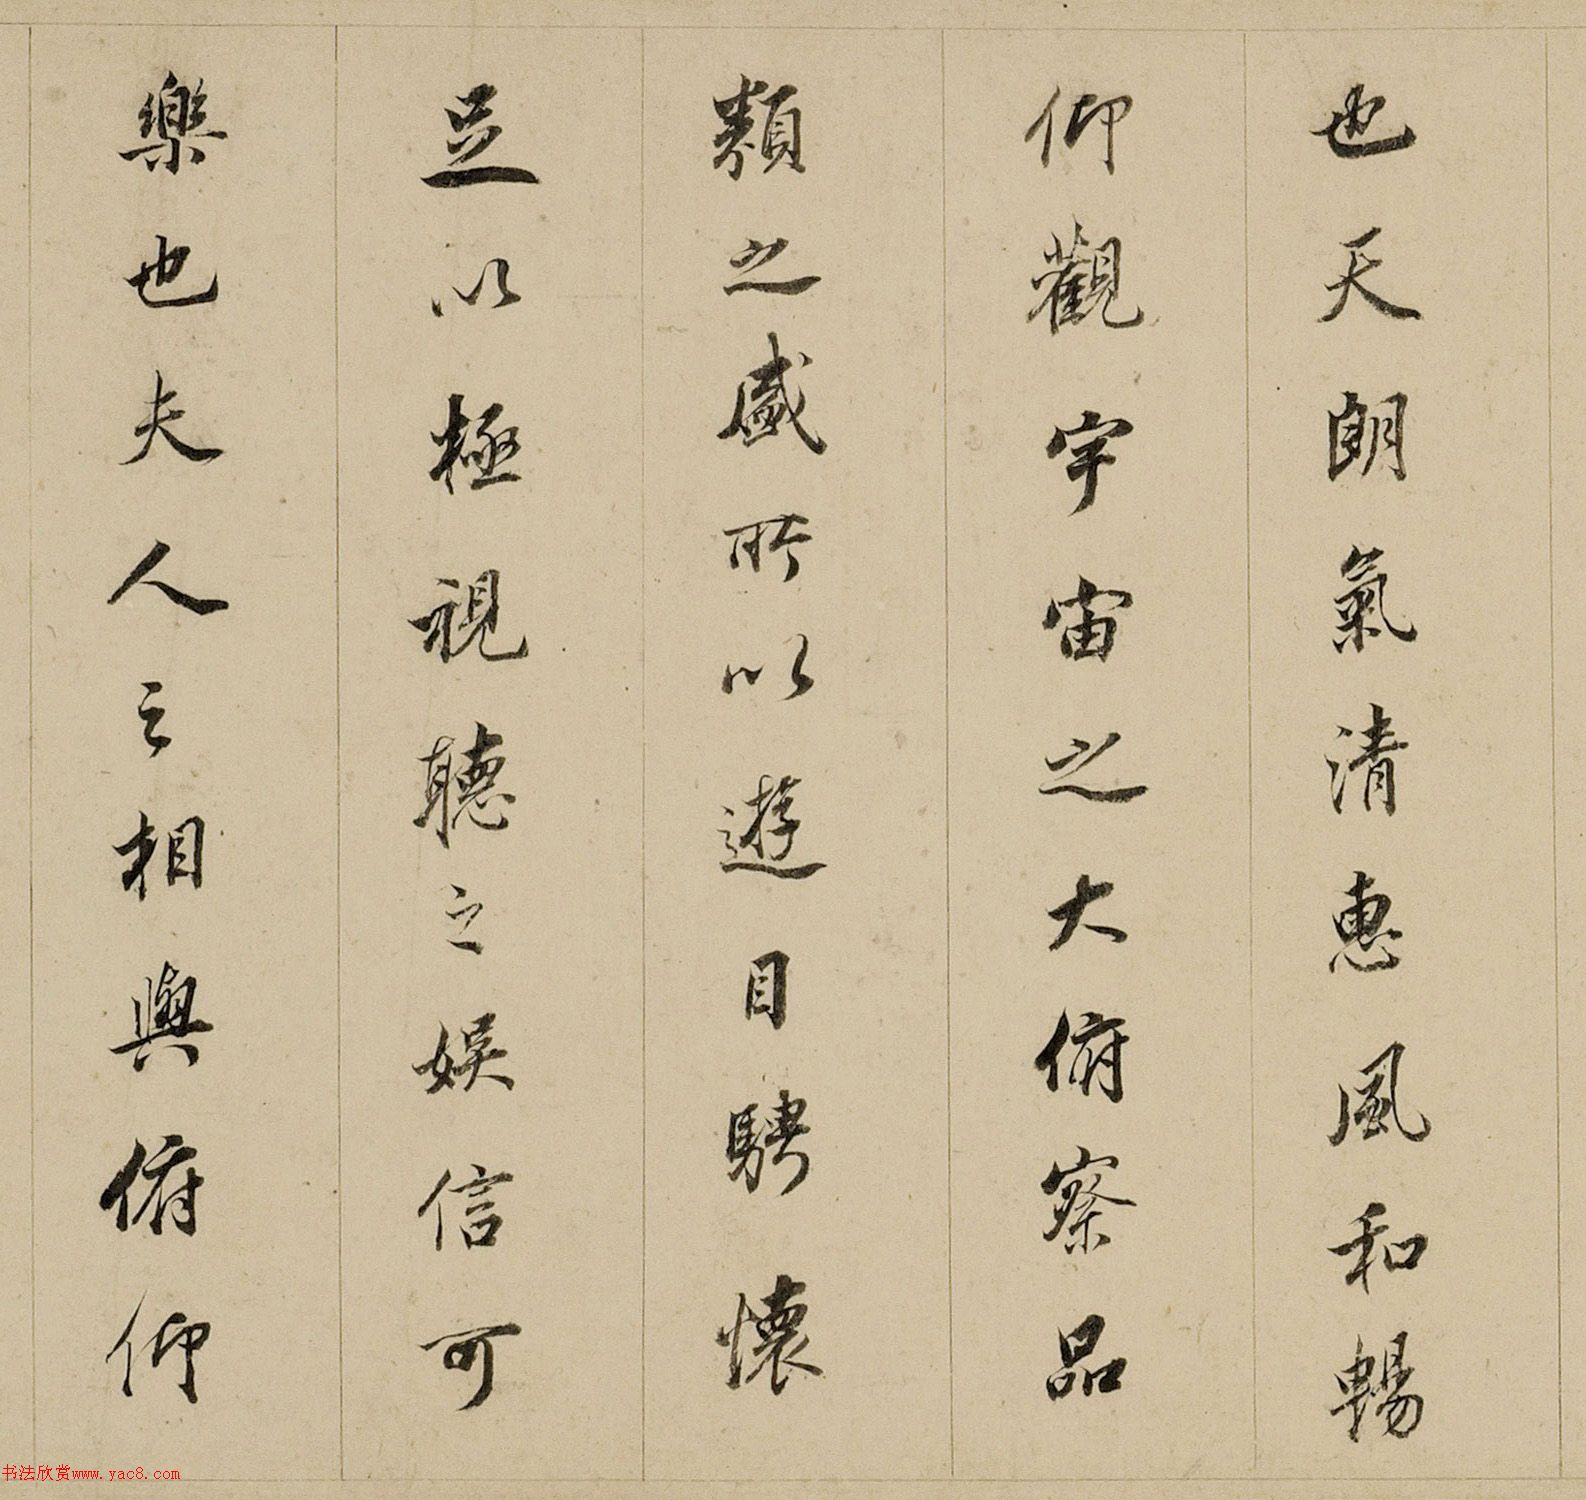 也天朗氣清惠風和暢
仰觀宇宙之大俯察品
類之盛所以遊目騁懷
足以極視聽之娛信可
樂也夫人之相與俯仰
书法欣赏www.yac8.com